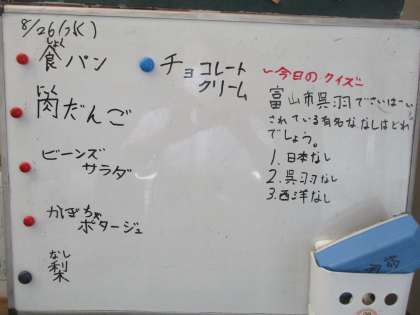 8/26(水)
しょく
食パン
にく
肉だんご
ビーンズ
サラダ
かぼちゃ
ポタージュ
なし
梨
チョコレート
クリーム
～今日のクイズ～
富山市呉羽でさいばーい
されている有名ななしはどれ
でしょう。
1.日本なし
2.呉羽なし
3.西洋なし